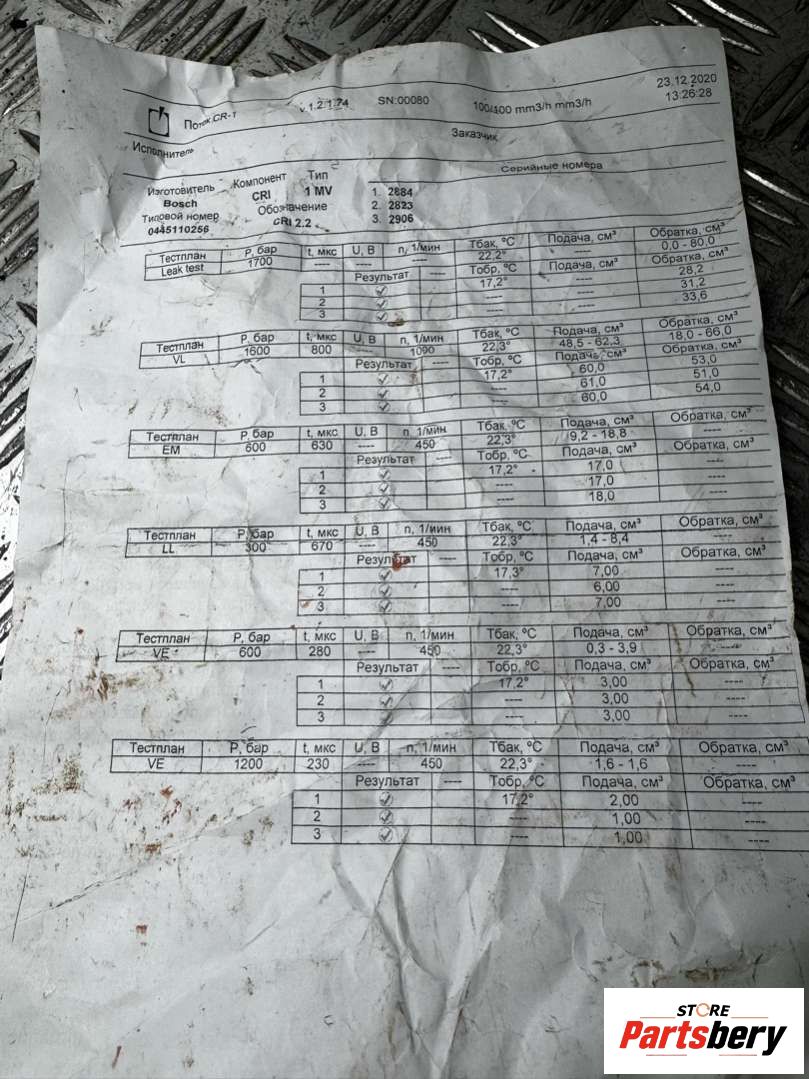 Поток CR-1 v.1.2.1.74 SN:00080 100/400 mm3/h mm3/h 23.12.2020
13:26:28
Исполнитель Заказчик
Изготовитель Компонент Тип Серийные номера
Bosch CRI 1 MV 1. 2884
Типовой номер Обозначение 2. 2823
0445110256 CRI 2.2 3. 2906
Тестплан P, бар t, мкс U, В n, 1/мин Tбак, °C Подача, см³ Обратка, см³
Leak test 1700 ---- ---- ---- 22,2° ---- 0,0 - 80,0
Результат ---- Tобр, °C Подача, см³ Обратка, см³
1 17,2° ---- 28,2
2 ---- ---- 31,2
3 ---- ---- 33,6
Тестплан P, бар t, мкс U, В n, 1/мин Tбак, °C Подача, см³ Обратка, см³
VL 1600 800 ---- 1000 22,3° 48,5 - 62,3 18,0 - 66,0
Результат ---- Tобр, °C Подача, см³ Обратка, см³
1 17,2° 60,0 53,0
2 ---- 61,0 51,0
3 ---- 60,0 54,0
Тестплан P, бар t, мкс U, В n, 1/мин Tбак, °C Подача, см³ Обратка, см³
EM 600 630 ---- 450 22,3° 9,2 - 18,8 ----
Результат ---- Tобр, °C Подача, см³ Обратка, см³
1 17,2° 17,0 ----
2 ---- 17,0 ----
3 ---- 18,0 ----
Тестплан P, бар t, мкс U, В n, 1/мин Tбак, °C Подача, см³ Обратка, см³
LL 300 670 ---- 450 22,3° 1,4 - 8,4 ----
Результат ---- Tобр, °C Подача, см³ Обратка, см³
1 17,3° 7,00 ----
2 ---- 6,00 ----
3 ---- 7,00 ----
Тестплан P, бар t, мкс U, В n, 1/мин Tбак, °C Подача, см³ Обратка, см³
VE 600 280 ---- 450 22,3° 0,3 - 3,9 ----
Результат ---- Tобр, °C Подача, см³ Обратка, см³
1 17,2° 3,00 ----
2 ---- 3,00 ----
3 ---- 3,00 ----
Тестплан P, бар t, мкс U, В n, 1/мин Tбак, °C Подача, см³ Обратка, см³
VE 1200 230 ---- 450 22,3° 1,6 - 1,6 ----
Результат ---- Tобр, °C Подача, см³ Обратка, см³
1 17,2° 2,00 ----
2 ---- 1,00 ----
3 ---- 1,00 ----
STORE
Partsbery